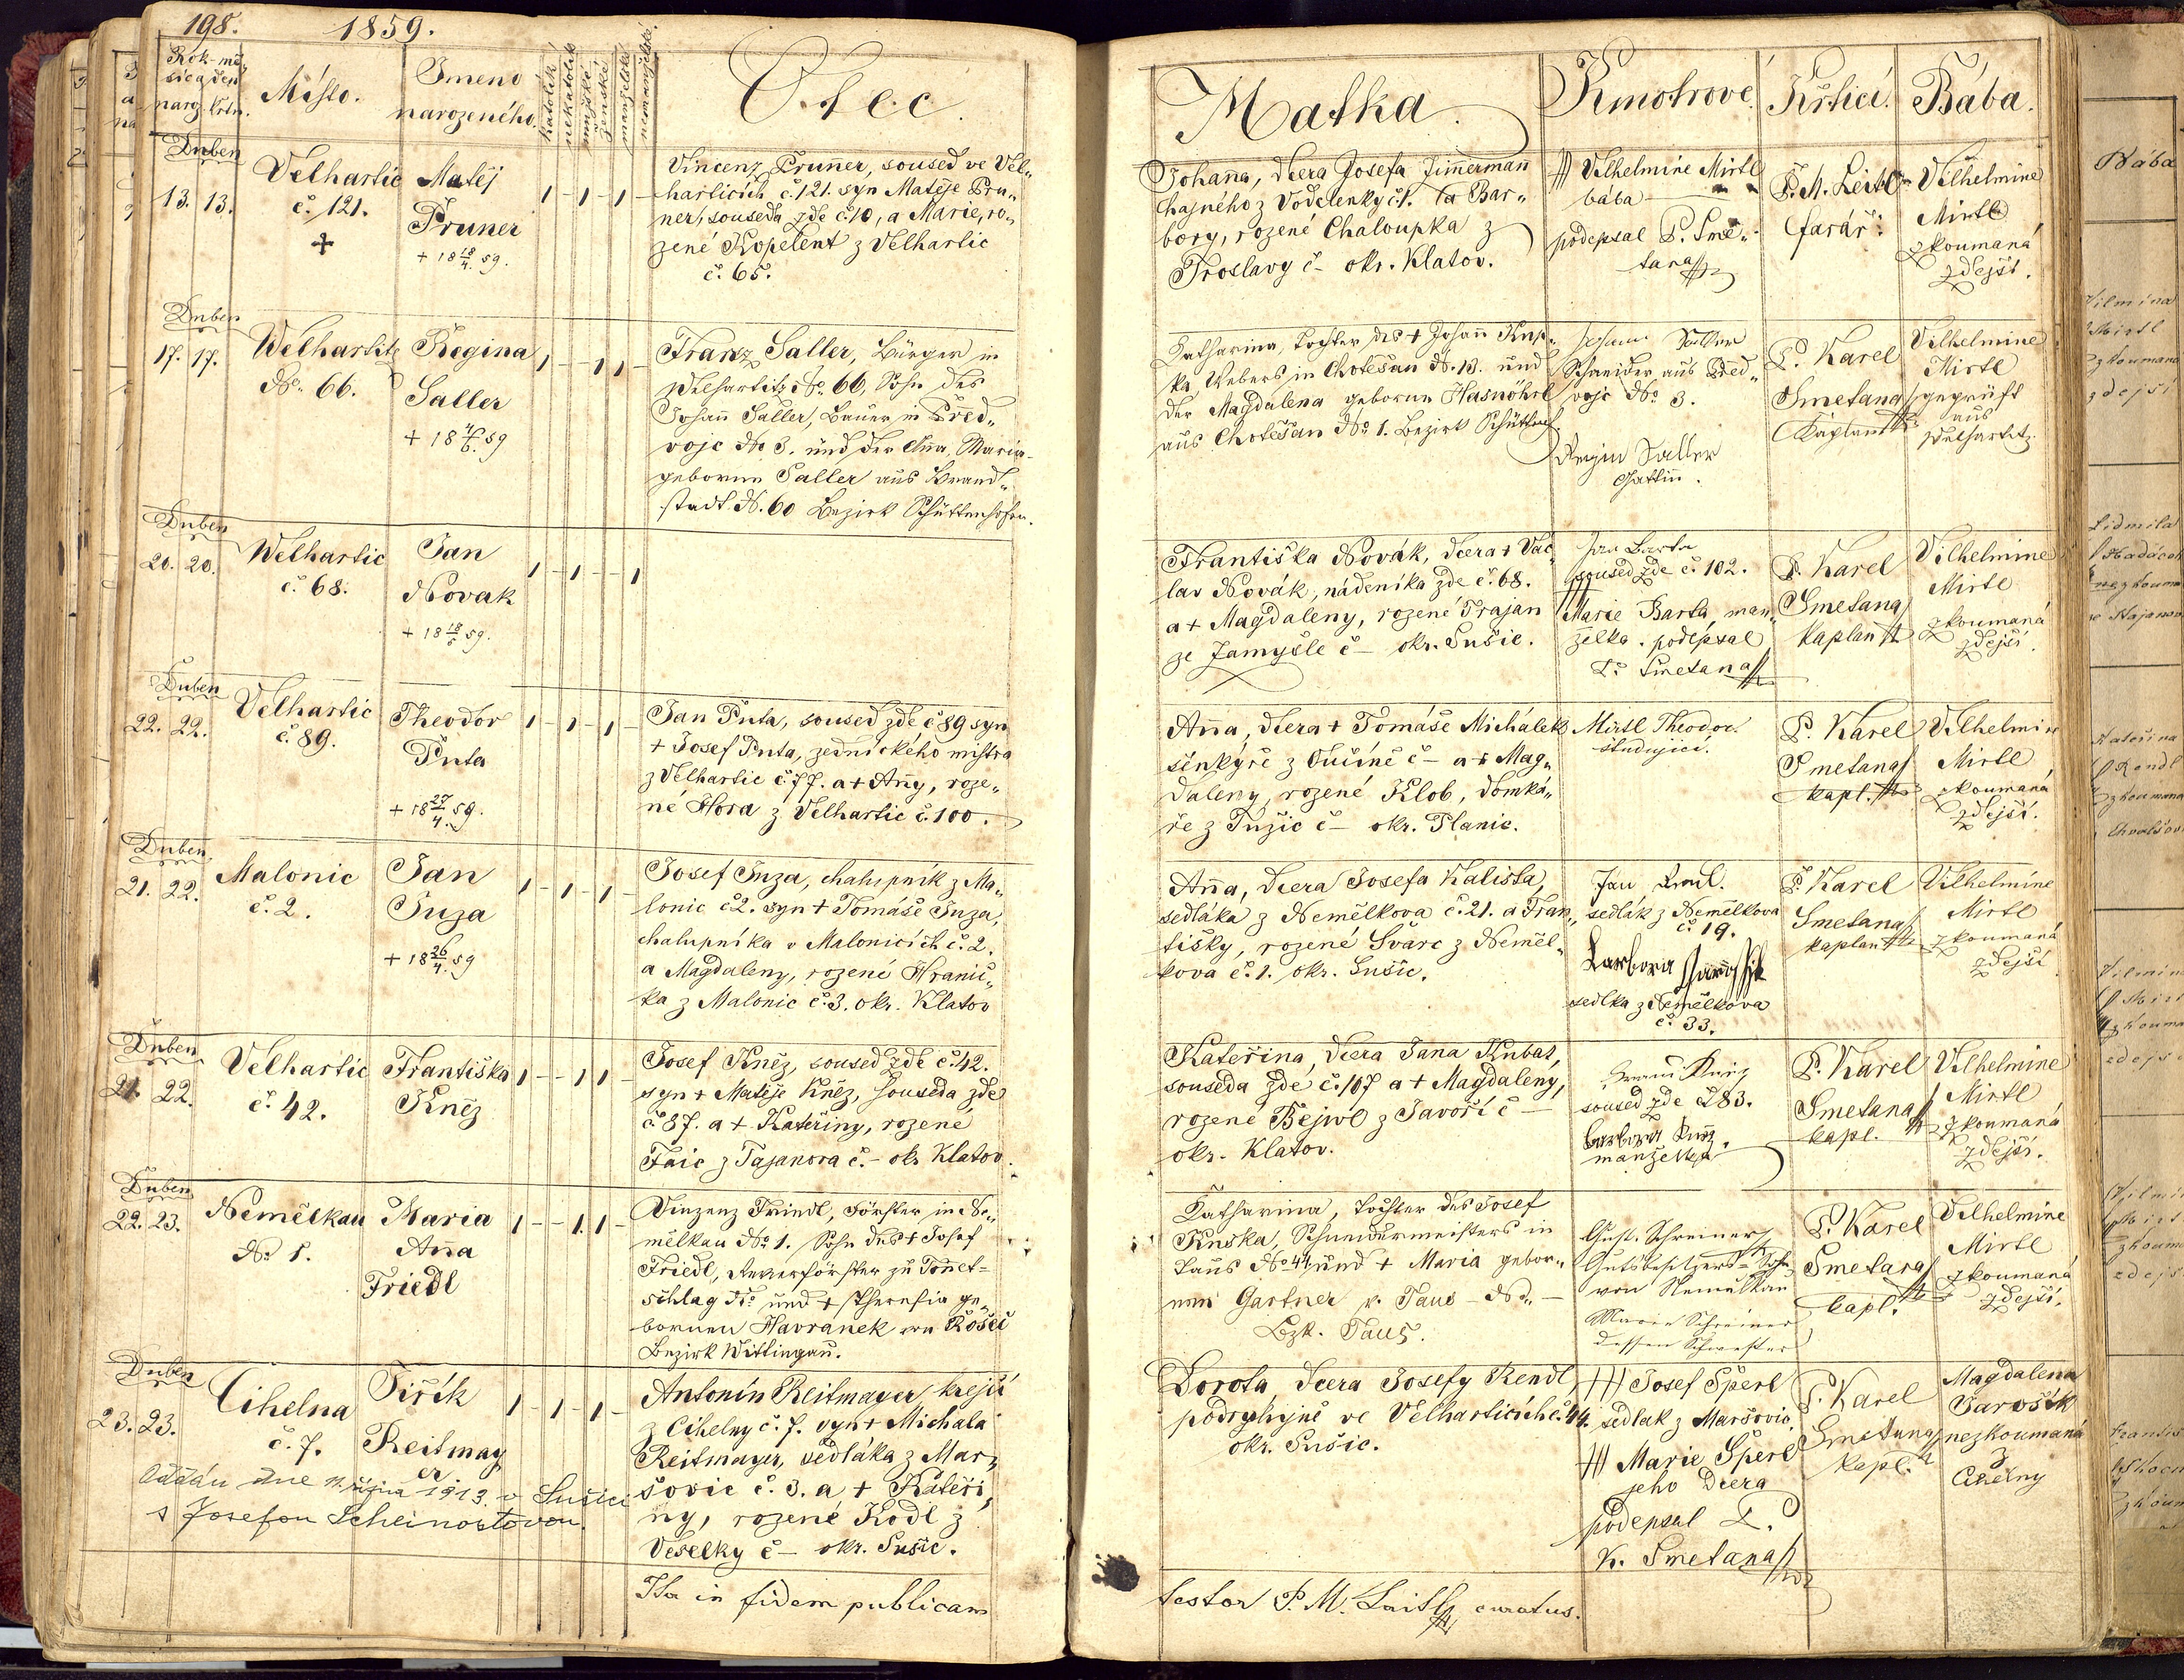 198. 1859.
Rok-mě-
síc a den
naroz. křtn.
Místo.
Jmeno
narozeného.
katolík
nekatolík
mužské
ženské
manželské
nemanželské
Otec.
Matka.
Kmotrové.
Křtící.
Bába.
Duben
13. 13.
Velhartic
č. 121.
Matěj
Pruner
+ 18 18/4. 59.
1 - 1 - 1 -
Vincenz Pruner, soused ve Vel„
harticích č. 121. syn Matěje Pru„
ner, souseda zde č. 10, a Marie, ro„
zené Kopelent z Velhartic
č. 65.
Johana, dcera Josefa Zimmerman
hajného z Vodolenky č. 1. a Bar„
bory, rozené Chaloupka z
Troslavy č - okr. Klatov.
Vilhelmine Mirtl
bába
podepsal P. Sme„
tana
P. M. Leitl
farář.
Vilhelmine
Mirtl
zkoumaná
zdejší.
Duben
17. 17.
Welhartitz
No. 66.
Regina
Saller
+ 18 4/6. 59
1 - 1 1 -
Franz Saller, Bürger in
Welhartitz No. 66, Sohn des
Johann Saller, Bauer in Před„
voje No 3. und der Anna Maria
geborne Saller aus Brand„
stadt N. 60 Bezirk Schüttenhofen.
Katharina, Tochter des + Johann Knp„
ka, Webers in Chotěšau N. 13. und
der Magdalena geborne Hasnöhrl
aus Chotěšau No 1. Bezirk Schüttenh.
Johann Saller
Schneider aus Před„
voje No 3.
Regin Saller
Gattin.
P. Karel
Smetana
Kaplan
Vilhelmine
Mirtl
geprüft
aus
Welhartitz.
Duben
20. 20.
Welhartic
č. 68.
Jan
Novak
+ 18 18/5 59.
1 - 1 - - 1
Františka Novák, dcera + Vác
lav Novák, nádeníka zde č. 68.
a + Magdaleny, rozené Trajan
ze Zamyšle č - okr. Sušic.
Jan Barta
soused zde č. 102.
Marie Barta, man„
želka. podepsal
P. Smetana
P. Karel
Smetana
kaplan
Vilhelmine
Mirtl
zkoumaná
zdejší.
Duben
22. 22.
Velhartic
č. 89.
Theodor
Puta
+ 18 27/4. 59.
1 - 1 - 1 -
Jan Puta, soused zde č 89 syn
+ Josef Puta, zednického mistra
z Velhartic č. 77. a + Anny, roze„
né Hora z Velhartic č. 100.
Anna, dcera + Tomáše Michálek
šenkýře z Čučiné č - a + Mag„
daleny, rozené Klob, domká„
ře z Tužic č - okr. Planic.
Mirtl Theodor
študující.
P. Karel
Smetana
kapl.
Vilhelmine
Mirtl
zkoumaná
zdejší.
Duben
21. 22.
Malonic
č. 2.
Jan
Juza
+ 18 26/4. 59
1 - 1 - 1 -
Josef Juza, chalupník z Ma„
lonic č 2. syn + Tomáše Juza,
chalupníka v Malonicích č. 2.
a Magdaleny, rozené Hranič„
ka z Malonic č. 3. okr. Klatov
Anna, dcera Josefa Kalista,
sedláka z Nemělkova č. 21. a Fran„
tišky, rozené Švarc z Němel„
kova č. 1. okr. Sušic.
Jan
sedlák z Nemělkova
č. 19.
Barbora
sedlka z Nemělkova
č. 33.
P. Karel
Smetana
kaplan
Vilhelmine
Mirtl
zkoumaná
zdejší
Duben
21. 22.
Velhartic
č. 42.
Františka
Kněz
1 - - 1 1 -
Josef Kněz, soused zde č. 42.
syn + Matěje Kněz, souseda zde
č. 87. a + Kateřiny, rozené
Faic z Tajanova č. - okr. Klatov.
Kateřina, dcera Jana Kubat,
souseda zde č. 107 a + Magdaleny,
rozené Bejwl z Javoří č -
okr. Klatov.
soused zde č 83.
Barbora
manželka
P. Karel
Smetana
kapl.
Vilhelmine
Mirtl
zkoumaná
zdejší.
Duben
22. 23.
Nemělkau
No 1.
Maria
Anna
Friedl
1 - - 1. 1 -
Vinzenz Friedl, Förster in Ne„
mělkau No 1. Sohn des + Josef
Friedl, Revierförster zu Tonet-
schlag No und + Theresia ge„
bornen Havranek von Košči
Bezirk Wittingau.
Katharina, Tochter des Josef
Knska, Schneidermeisters in
Taus No 44 und + Maria gebor„
nen Gartner v. Taus - No -
Bzk. Taus.
Gust. Schreiner
Gutsbesitzers-Sohn
von Nemelkau
Marie Schreiner
dessen Schwester
P. Karel
Smetana
kapl.
Vilhelmine
Mirtl
zkoumaná
zdejší.
Duben
23. 23.
Cihelna
č. 7.
Jiřík
Reitmay
er
1 - 1 - 1 -
Oddán dne 11. října 1913. v Sušici
s Josefou Scheinostovou.
Antonín Reitmayer, krejčí
z Cihelny č. 7. syn + Michala
Reitmayer, sedláka z Mar„
šovic č. 3. a + Kateři„
ny, rozené Kodl z
Veselky č - okr. Sušic.
Dorota, dcera Josefy Rendl,
podruhyně ve Velharticích č. 44.
okr. Sušic.
+++ Josef Šperl
sedlak z Maršovic
+++ Marie Šperl
jeho dcera
podepsal P.
K. Smetana
P. Karel
Smetana
kapl.
Magdalena
Jarošík
nezkoumaná
z
Cihelny
Ita in fidem publicam
testor P. M. Laitl, curatus.